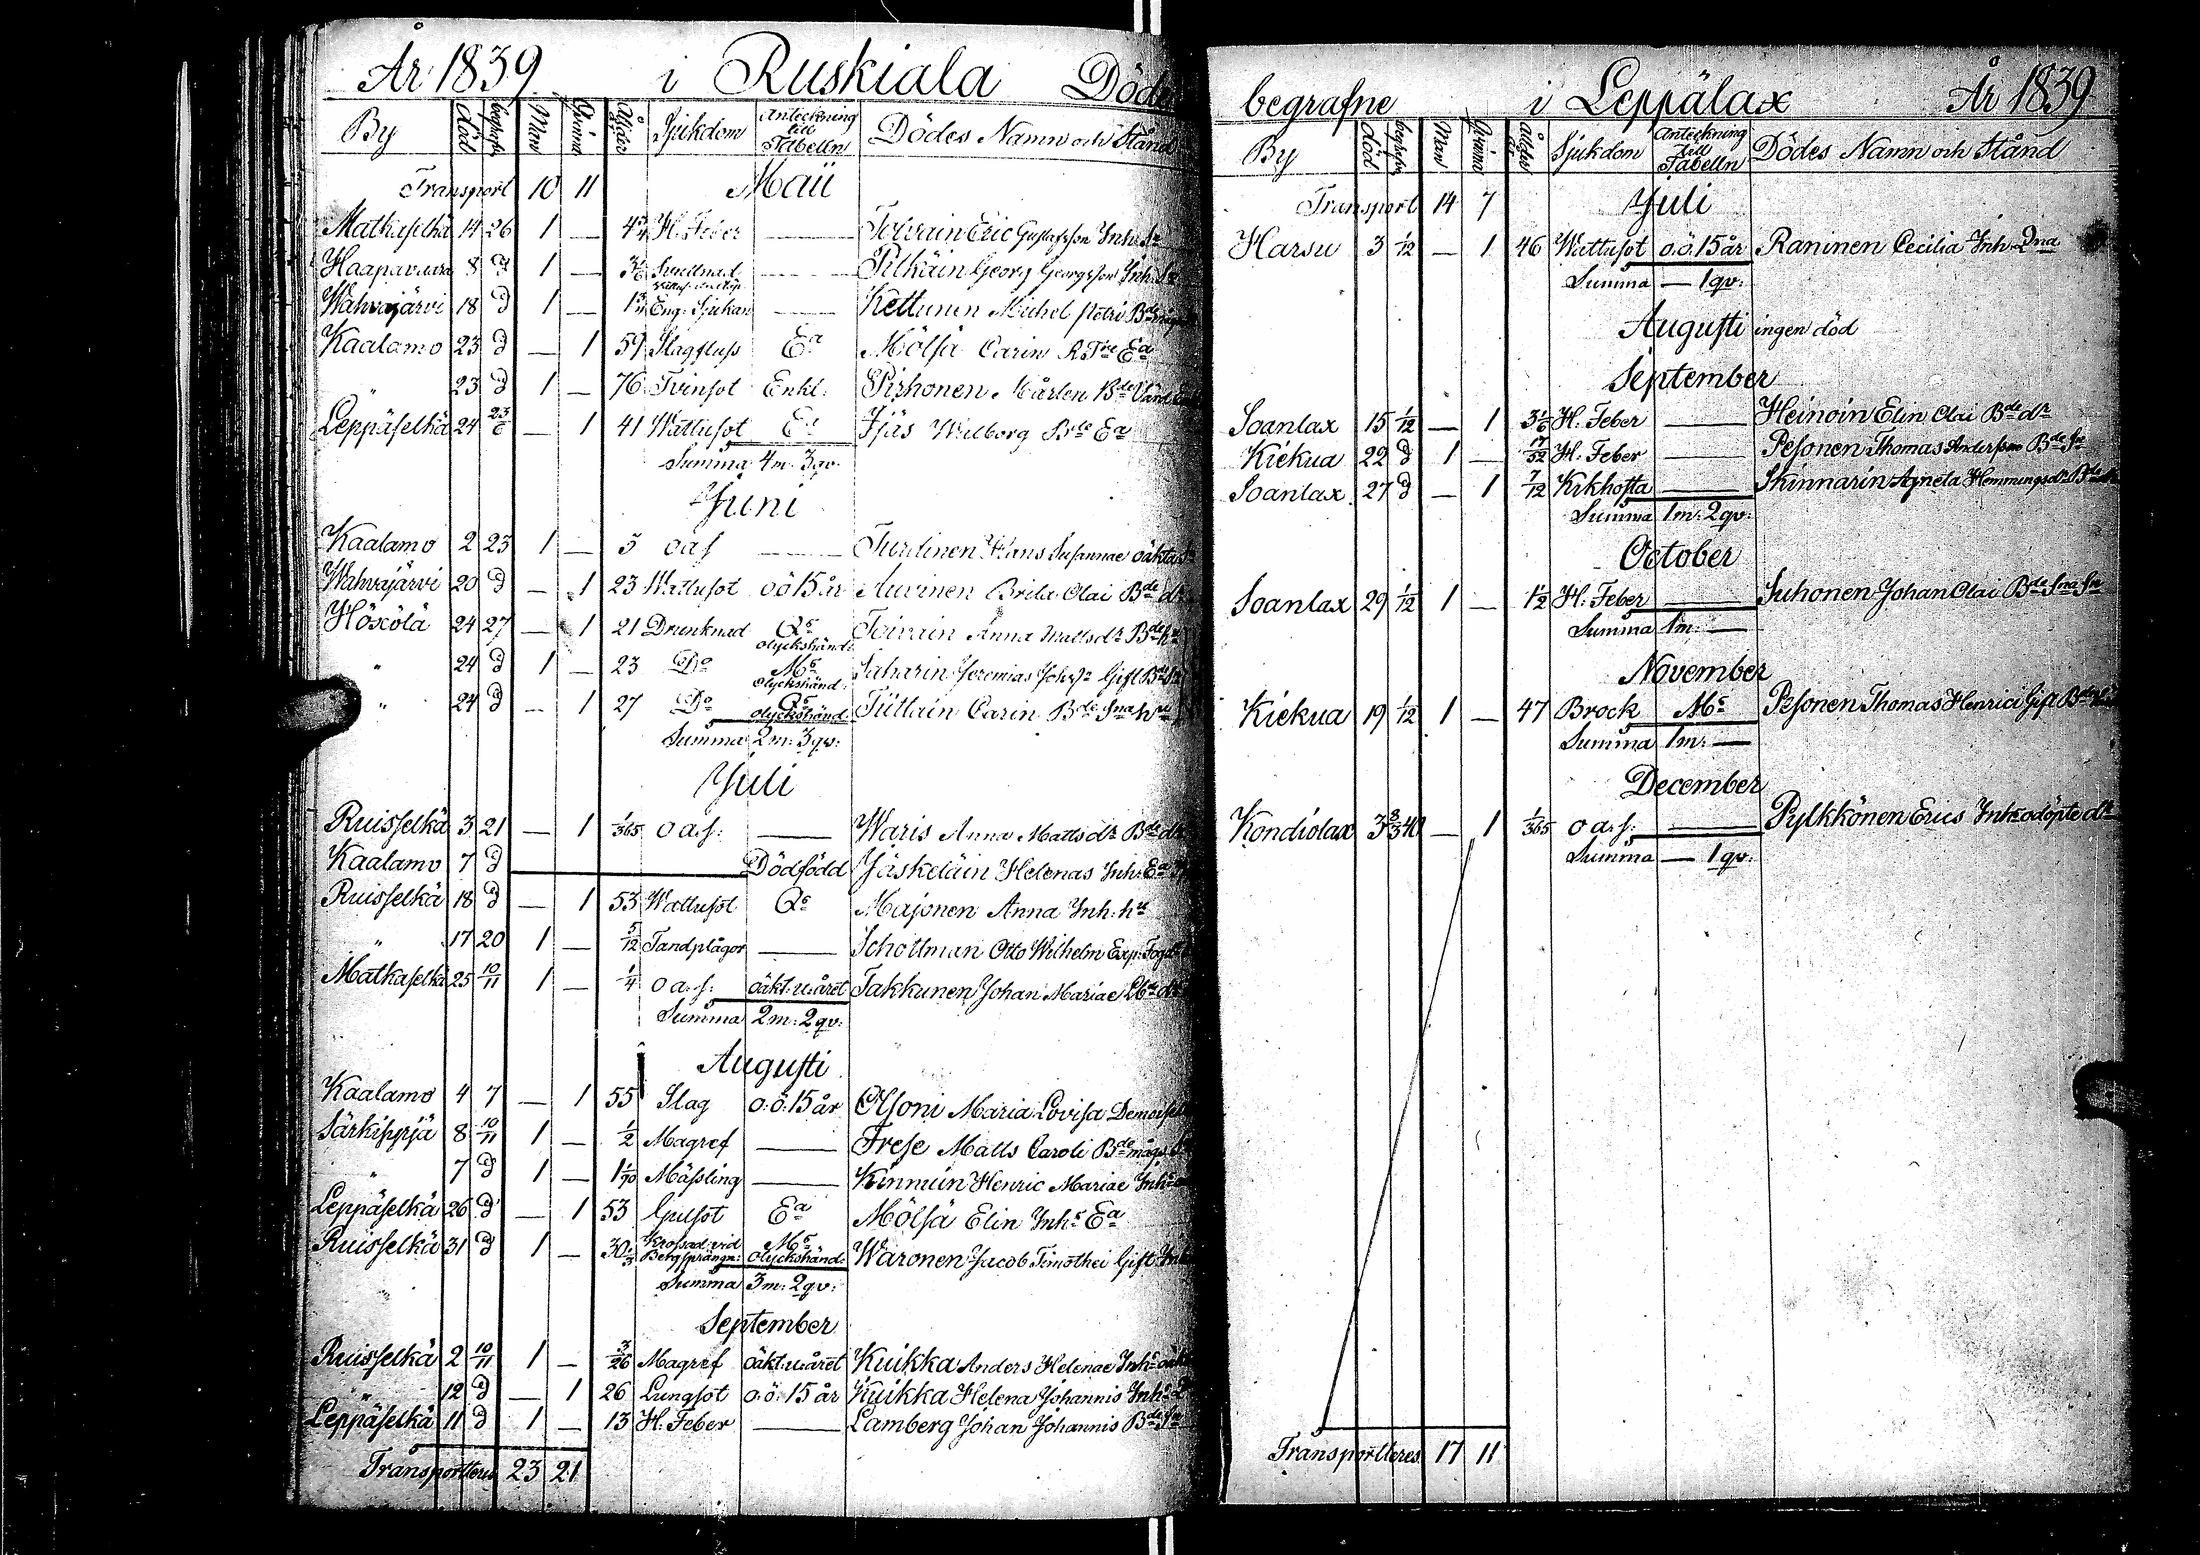 År 1839 i Ruskiala Döde
By död begrafne Man Qvinna Ålder Sjukdom Anteckning till Tabelln Dödes Namn och Stånd
Transport 10 11 Maii
Matkaselkä 14 26 1 — H. Feber — Toivain Eric Gustafsson Inh: Sn
Haapavaara 8 d 1 — — Pitkäin Georg Georgsson Inh: Sn
Wahvajärvi 18 d 1 — Eng. Sjukan — Kettunen Michel Petri Bde
Kaalamo 23 d — 1 59 Slagfluss Ea Mölsä Carin Ea
" 23 d 1 — 76 Tvinsot Enkl: Pirhonen Mårten Bde
Leppäselkä 24 23/6 — 1 41 Wattusot Ea Ijäs Walborg Bde Ea
Summa 4m. 3qv.
Juni
Kaalamo 2 23 1 — 5 oaf — Turtinen Hans Susannae oäkta
Wahvajärvi 20 d — 1 23 Wattusot o.ö 15 år Auvinen Brita Olai Bde dr
Höxölä 24 27 — 1 21 Drunknad Qs olyckshänd: Toivain Anna Mattsdr Bde hu
" 24 d 1 — 23 Do Ms olyckshänd: Saharin Jeremias Gift Bde
" 24 d — 1 27 Do Qs olyckshänd: Tiittain Carin Bde Sna hu
Summa 2m: 3qv:
Juli
Ruisselkä 3 21 — 1 1/365 o a.f: — Waris Anna Mattsdr Bde dr
Kaalamo 7 d Dödfödd Jäskeläin Helenas Inh: Ea
Ruisselkä 18 d — 1 53 Wattusot Qs Majonen Anna Inh: hu
" 17 20 1 — 5/12 Tandplågor — Schottman Otto Wilhelm Exp:
Matkaselkä 25 10/11 1 — 1/4 o a.f: oäkt: u: året Takkunen Johan Mariae
Summa 2m: 2qv:
Augusti
Kaalamo 4 7 — 1 55 Slag o: ö: 15 år Olsoni Maria Lovisa
Särkisyrjä 8 10/11 1 — 1/2 Magref — Frese Matts Caroli Bde mågs
" 7 d 1 — Mässling — Kinnuin Henric Mariae Inhs
Leppäselkä 26 d — 1 53 Gulsot Ea Mölsä Elin Inhs Ea
Ruisselkä 31 d 1 — Krossad vid Bergsprängn: Ms olyckshänd: Waronen Jacob Timothei Gift
Summa 3m: 2qv:
September
Ruisselkä 2 10/11 1 — 3/26 Magref oäkt: u: året Kuikka Anders Helenae Inhs
" 12 d — 1 26 Lungsot o: ö: 15 år Kuikka Helena Johannis Inhs
Leppäselkä 11 d 1 — 13 H. Feber — Lamberg Johan Johannis Bde Sn
Transportteres 23 21
begrafne i Leppälax År 1839
By död begrafne Man Qvinna ålder Sjukdom Anteckning till Tabelln Dödes Namn och Stånd
Transport 14 7 Juli
Harsu 3 1/12 — 1 46 Wattusot o.ö. 15 år Raninen Cecilia Inh:
Summa — 1qv:
Augusti ingen död
September
Soanlax 15 1/12 — 1 3 1/6 H. Feber — Heinoin Elin Olai Bde dr
Kiekua 22 d 1 — 17/52 H. Feber — Pesonen Thomas Andersson Bde Sn
Soanlax 27 d — 1 7/12 Kikhosta — Skinnarin Agneta Hemmingsdr Bde
Summa 1m: 2qv:
October
Soanlax 29 1/12 1 — 1 1/2 H. Feber — Suhonen Johan Olai Bde Sna Sn
Summa 1m: —
November
Kiekua 19 1/12 1 — 47 Brock Ms Pesonen Thomas Henrici Gift Bde
Summa 1m: —
December
Kondiolax — 1 1/365 o a.f: — Pylkkönen Erics Inhs odöpte dr
Summa — 1qv:
Transportteres 17 11